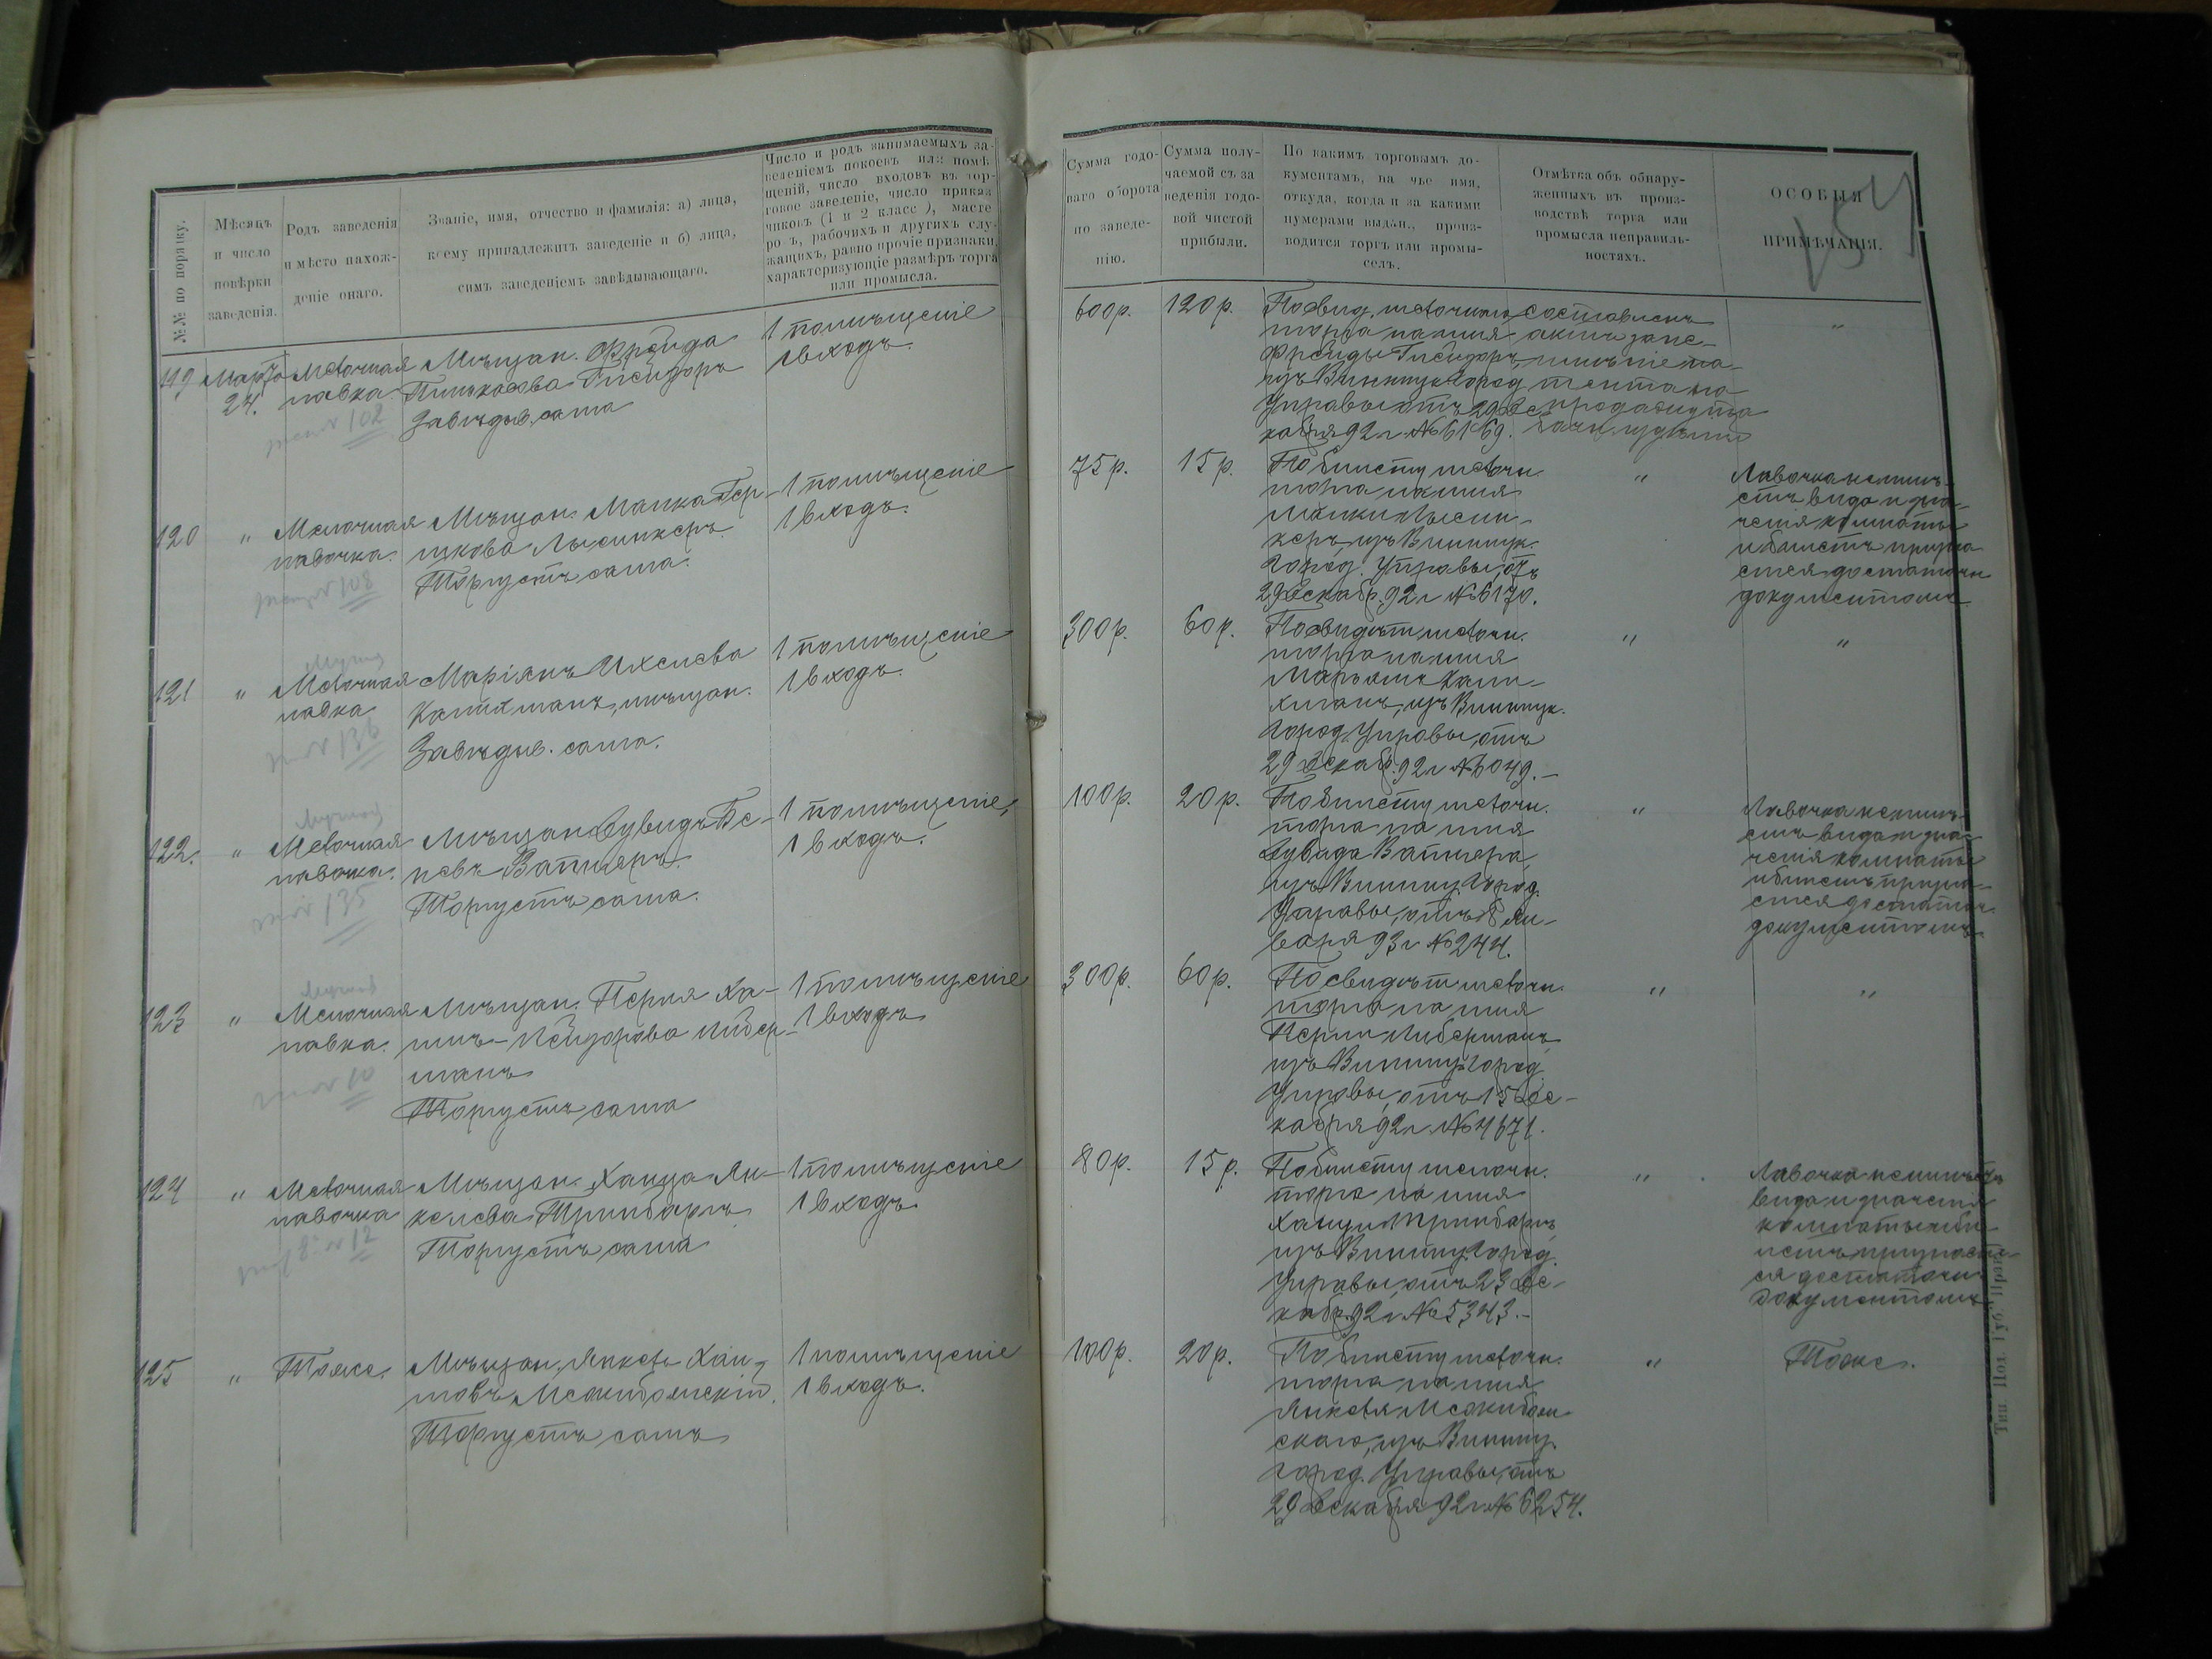 №№ по порядку.
Мѣсяцъ
и число
повѣрки
заведенія.
Родъ заведенія
и мѣсто нахож-
деніе онаго.
Званіе, имя, отчество и фамилія: а) лица,
коему принадлежитъ заведеніе и б) лица,
симъ заведеніемъ завѣдывающаго.
Число и родъ занимаемыхъ за-
веденіемъ покоевъ или помѣ-
щеній, число входовъ въ тор-
говое заведеніе, число прикаа-
чиковъ (1 и 2 класс), масте-
ровъ, рабочихъ и другихъ слу-
жащихъ, равно прочіе признаки,
характеризующіе размѣръ торга
или промысла.
Сумма годо-
ваго оборота
по заведе-
нію.
Сумма полу-
чаемой съ за
веденія годо-
вой чистой
прибыли.
По какимъ торговымъ до-
кументамъ, на чье имя,
откуда, когда и за какими
нумерами выдан., произ-
водится торгъ или промы-
селъ.
Отмѣтка объ обнару-
женныхъ въ произ-
водствѣ торга или
промысла неправиль-
ностяхъ.
ОСОБЫЯ
ПРИМѢЧАНІЯ.
119
Марта
24.
Мелочная
лавка
102
Мѣщан. Фрейда
Пинькасова Гисидоръ
Завѣдыв. сама
1 помѣщеніе
1 входъ.
600р.
120р.
По свид. мелочнаго
торга на имя
Фрейды Гисидоръ,
изъ Винниц. Город
Управы отъ 29 Де-
кабря 92 г. № 6169.
составленъ
актъ за не-
имѣніе па-
тента на
продажу та
бачн. издѣлій
"
120
"
Мелочная
лавочка.
108
Мѣщан. Малка Гер-
шкова Лысинкеръ.
Торгуетъ сама.
1 помѣщеніе
1 входъ.
75р.
15р.
По билету мелочн.
торга на имя
Малки Лысин-
керъ, изъ Винниц.
Город. Управы, отъ
29 Декабр. 92 г. № 6170.
"
Лавочка не имѣ-
етъ вида и зна-
ченія комнаты
и билетъ призна
ется достаточн
документомъ.
121
"
Мелочная
лавка
136
Маріямъ Ихелева
Каплманъ, мѣщан.
Завѣдыв. сама.
1 помѣщеніе
1 входъ.
300р.
60р.
По свидѣт. мелочн.
торга на имя
Марьямъ Капл-
манъ, изъ Винниц.
Город. Управы, отъ
29 Декаб. 92 г. № 6049.-
"
"
122.
"
Мелочная
лавочка.
135
Мѣщан. Дувидъ Бе-
невъ Вайнеръ.
Торгуетъ сама.
1 помѣщеніе,
1 входъ.
100р.
20р.
По билету мелочн.
торга на имя
Дувида Вайнера,
изъ Винниц. Город.
Управы, отъ 8 Ян-
варя 93 г. № 244.
"
Лавочка не имѣ-
етъ вида и зна-
ченія комнаты
и билетъ призна-
ется достаточ.
документомъ.
123
"
Мелочная
лавка.
10
Мѣщан. Перля Ха-
имъ-Исидорова Либер-
манъ
Торгуетъ сама
1 помѣщеніе
1 входъ
300р.
60р.
По свидѣт. мелочн.
торга на имя
Перли Либерманъ,
изъ Винниц. Город.
Управы, отъ 15 Де-
кабря 92 г. № 4671.
"
"
124
"
Мелочная
лавочка
12
Мѣщан. Ханца Ян-
келева Тринбаргъ
Торгуетъ сама
1 помѣщеніе
1 входъ.
80р.
15р.
По билету мелочн.
торга на имя
Ханци Тринбаргъ,
изъ Винниц. Город.
Управы, отъ 23 Де-
кабр. 92 г. № 5343.-
"
Лавочка не имѣетъ
вида и значенія
комнаты и би-
летъ признает-
ся достаточн.
документомъ
125
"
Тоже.
Мѣщан. Янкель Хаи-
мовъ Межибожскій.
Торгуетъ самъ
1 помѣщеніе
1 входъ.
100р.
20р.
По билету мелочн.
торга на имя
Янкеля Межибож
скаго, изъ Винниц.
город. Управы, отъ
29 Декабря 92 г. № 6254.
"
Тоже.
Тип. Под. Губ. Прав.